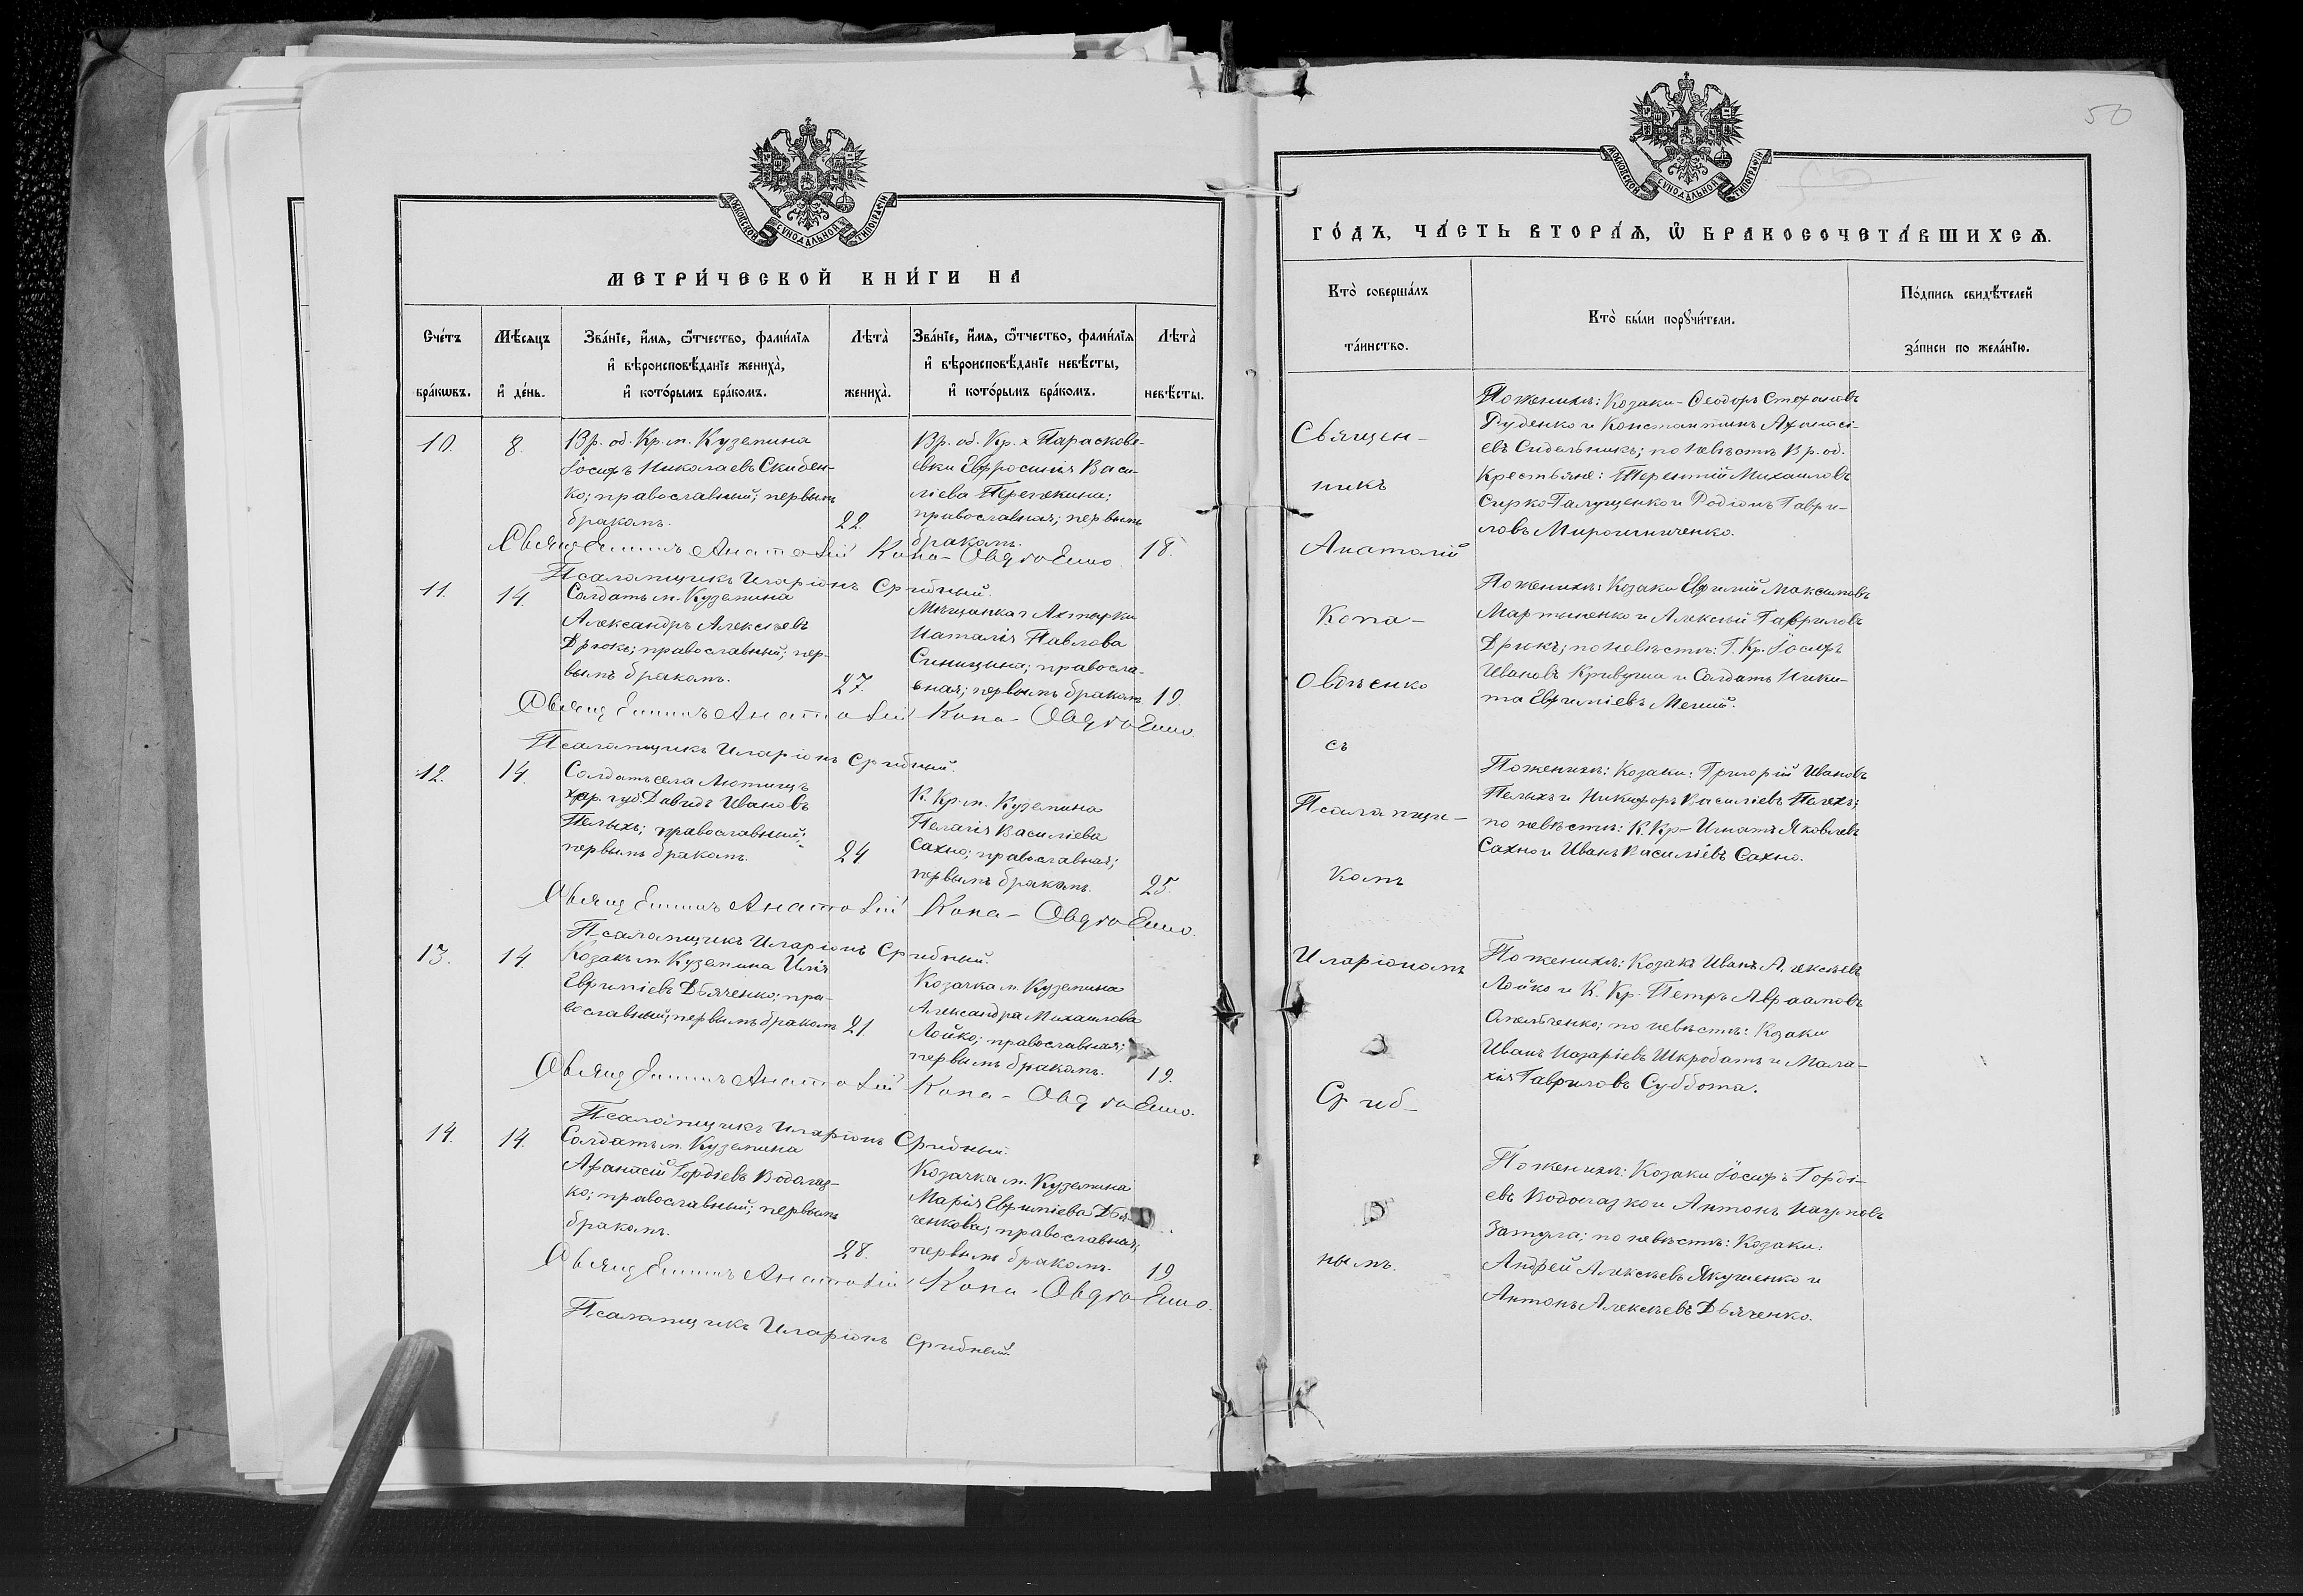 МОСКОВСКОЙ СУНОДАЛЬНОЙ ТИПОГРАФІИ
МЕТРИ́ЧЕСКОЙ КНИ́ГИ НА
Сче́тъ
бра́кѡвъ.
Мѣ́сяцъ
и҆ де́нь.
Зва́нїе, и҆́мя, ѻ҆́тчество, фами́лїя
и҆ вѣроисповѣ́данїе жениха̀,
и҆ кото́рымъ бра́комъ.
Лѣта̀
жениха̀.
Зва́нїе, и҆́мя, ѻ҆́тчество, фами́лїя
и҆ вѣроисповѣ́данїе невѣ́сты,
и҆ кото́рымъ бра́комъ.
Лѣта̀
невѣ́сты.
10.
8.
Вр. об. Кр. м. Куземина
Іосифъ Николаевъ Скибен-
ко; православный; первымъ
бракомъ.
22.
Вр. об. Кр. х Параскове-
евки Евфросинія Васи-
ліева Перепекина;
православная; первымъ
бракомъ.
18.
Священникъ Анатолій Копа-Овдѣенко.
Псаломщикъ Иларіонъ Срибный.
11.
14.
Солдатъ м. Куземина
Александръ Алексѣевъ
Дрюкъ; православный; пер-
вымъ бракомъ.
27.
Мѣщанка г Ахтырки
Наталія Павлова
Синицына; правосла-
вная; первымъ бракомъ
19.
Священникъ Анатолій Копа-Овдѣенко.
Псаломщикъ Иларіонъ Срибный.
12.
14.
Солдатъ села
хар. губ. Давидъ Ивановъ
Пелыхъ; православный;
первымъ бракомъ.
24
К. Кр. м. Куземина
Пелагія Василіева
Сахно; православная;
первымъ бракомъ.
25.
Священникъ Анатолій Копа-Овдѣенко.
Псаломщикъ Иларіонъ Срибный.
13.
14.
Козакъ м Куземина Илія
Евфиміевъ Дьяченко; пра-
вославный; первымъ бракомъ
21
Козачка м. Куземина
Александра Михаилова
Лойко; православная;
первымъ бракомъ.
19.
Священникъ Анатолій Копа-Овдѣенко.
Псаломщикъ Иларіонъ Срибный.
14.
14.
Солдатъ м. Куземина
Афанасій Гордіевъ Водолаз-
ко; православный; первымъ
бракомъ.
28.
Козачка м. Куземина
Марія Евфиміева Дья-
ченкова; православная;
первымъ бракомъ.
19
Священникъ Анатолій Копа-Овдѣенко.
Псаломщикъ Иларіонъ Срибный.
50
МОСКОВСКОЙ СУНОДАЛЬНОЙ ТИПОГРАФІИ
ГО́ДЪ, ЧА́СТЬ ВТОРА́Я, Ѡ҆ БРАКОСОЧЕТА́ВШИХСЯ.
Кто̀ соверша́лъ
та́инство.
Кто̀ бы́ли порꙋчи́тели.
По́дпись свидѣ́телей
за́писи по жела́нїю.
Священ-
никъ
Анатолій
Копа-
Овдѣенко
съ
Псаломщи-
комъ
Иларіономъ
Сриб-
нымъ.
По женихѣ: Козаки-Ѳеодоръ Стефановъ
Руденко и Константинъ Афанасі-
евъ Сидельникъ; по невѣстѣ Вр. об.
Крестьяне: Терентій Михаиловъ
Сирко-Галущенко и Родіонъ Гаври-
ловъ Мирошниченко.
По женихѣ: Козаки Евфимій Максимовъ
Мартыненко и Алексѣй Гавриловъ
Дрюкъ; по невѣстѣ: Г. Кр. Іосифъ
Ивановъ Кривуша и Солдатъ Ники-
та Евфиміевъ
По женихѣ: Козаки: Григорій Ивановъ
Пелыхъ и Никифоръ Василіевъ Пелехъ;
по невѣстѣ: К. Кр- Игнатъ Яковлевъ
Сахно и Иванъ Василіевъ Сахно.
По женихѣ: Козакъ Иванъ Алексѣевъ
Лойко и К. Кр. Петръ Авраамовъ
Омельченко; по невѣстѣ: Козаки
Иванъ Назаріевъ Шкробатъ и Мала-
хія Гавриловъ Суббота.
По женихѣ: Козаки Іосифъ Горді-
евъ Водолазко и Антонъ Наумовъ
Затула; по невѣстѣ: Козаки:
Андрей Алексѣевъ Якушенко и
Антонъ Алексѣевъ Дьяченко.